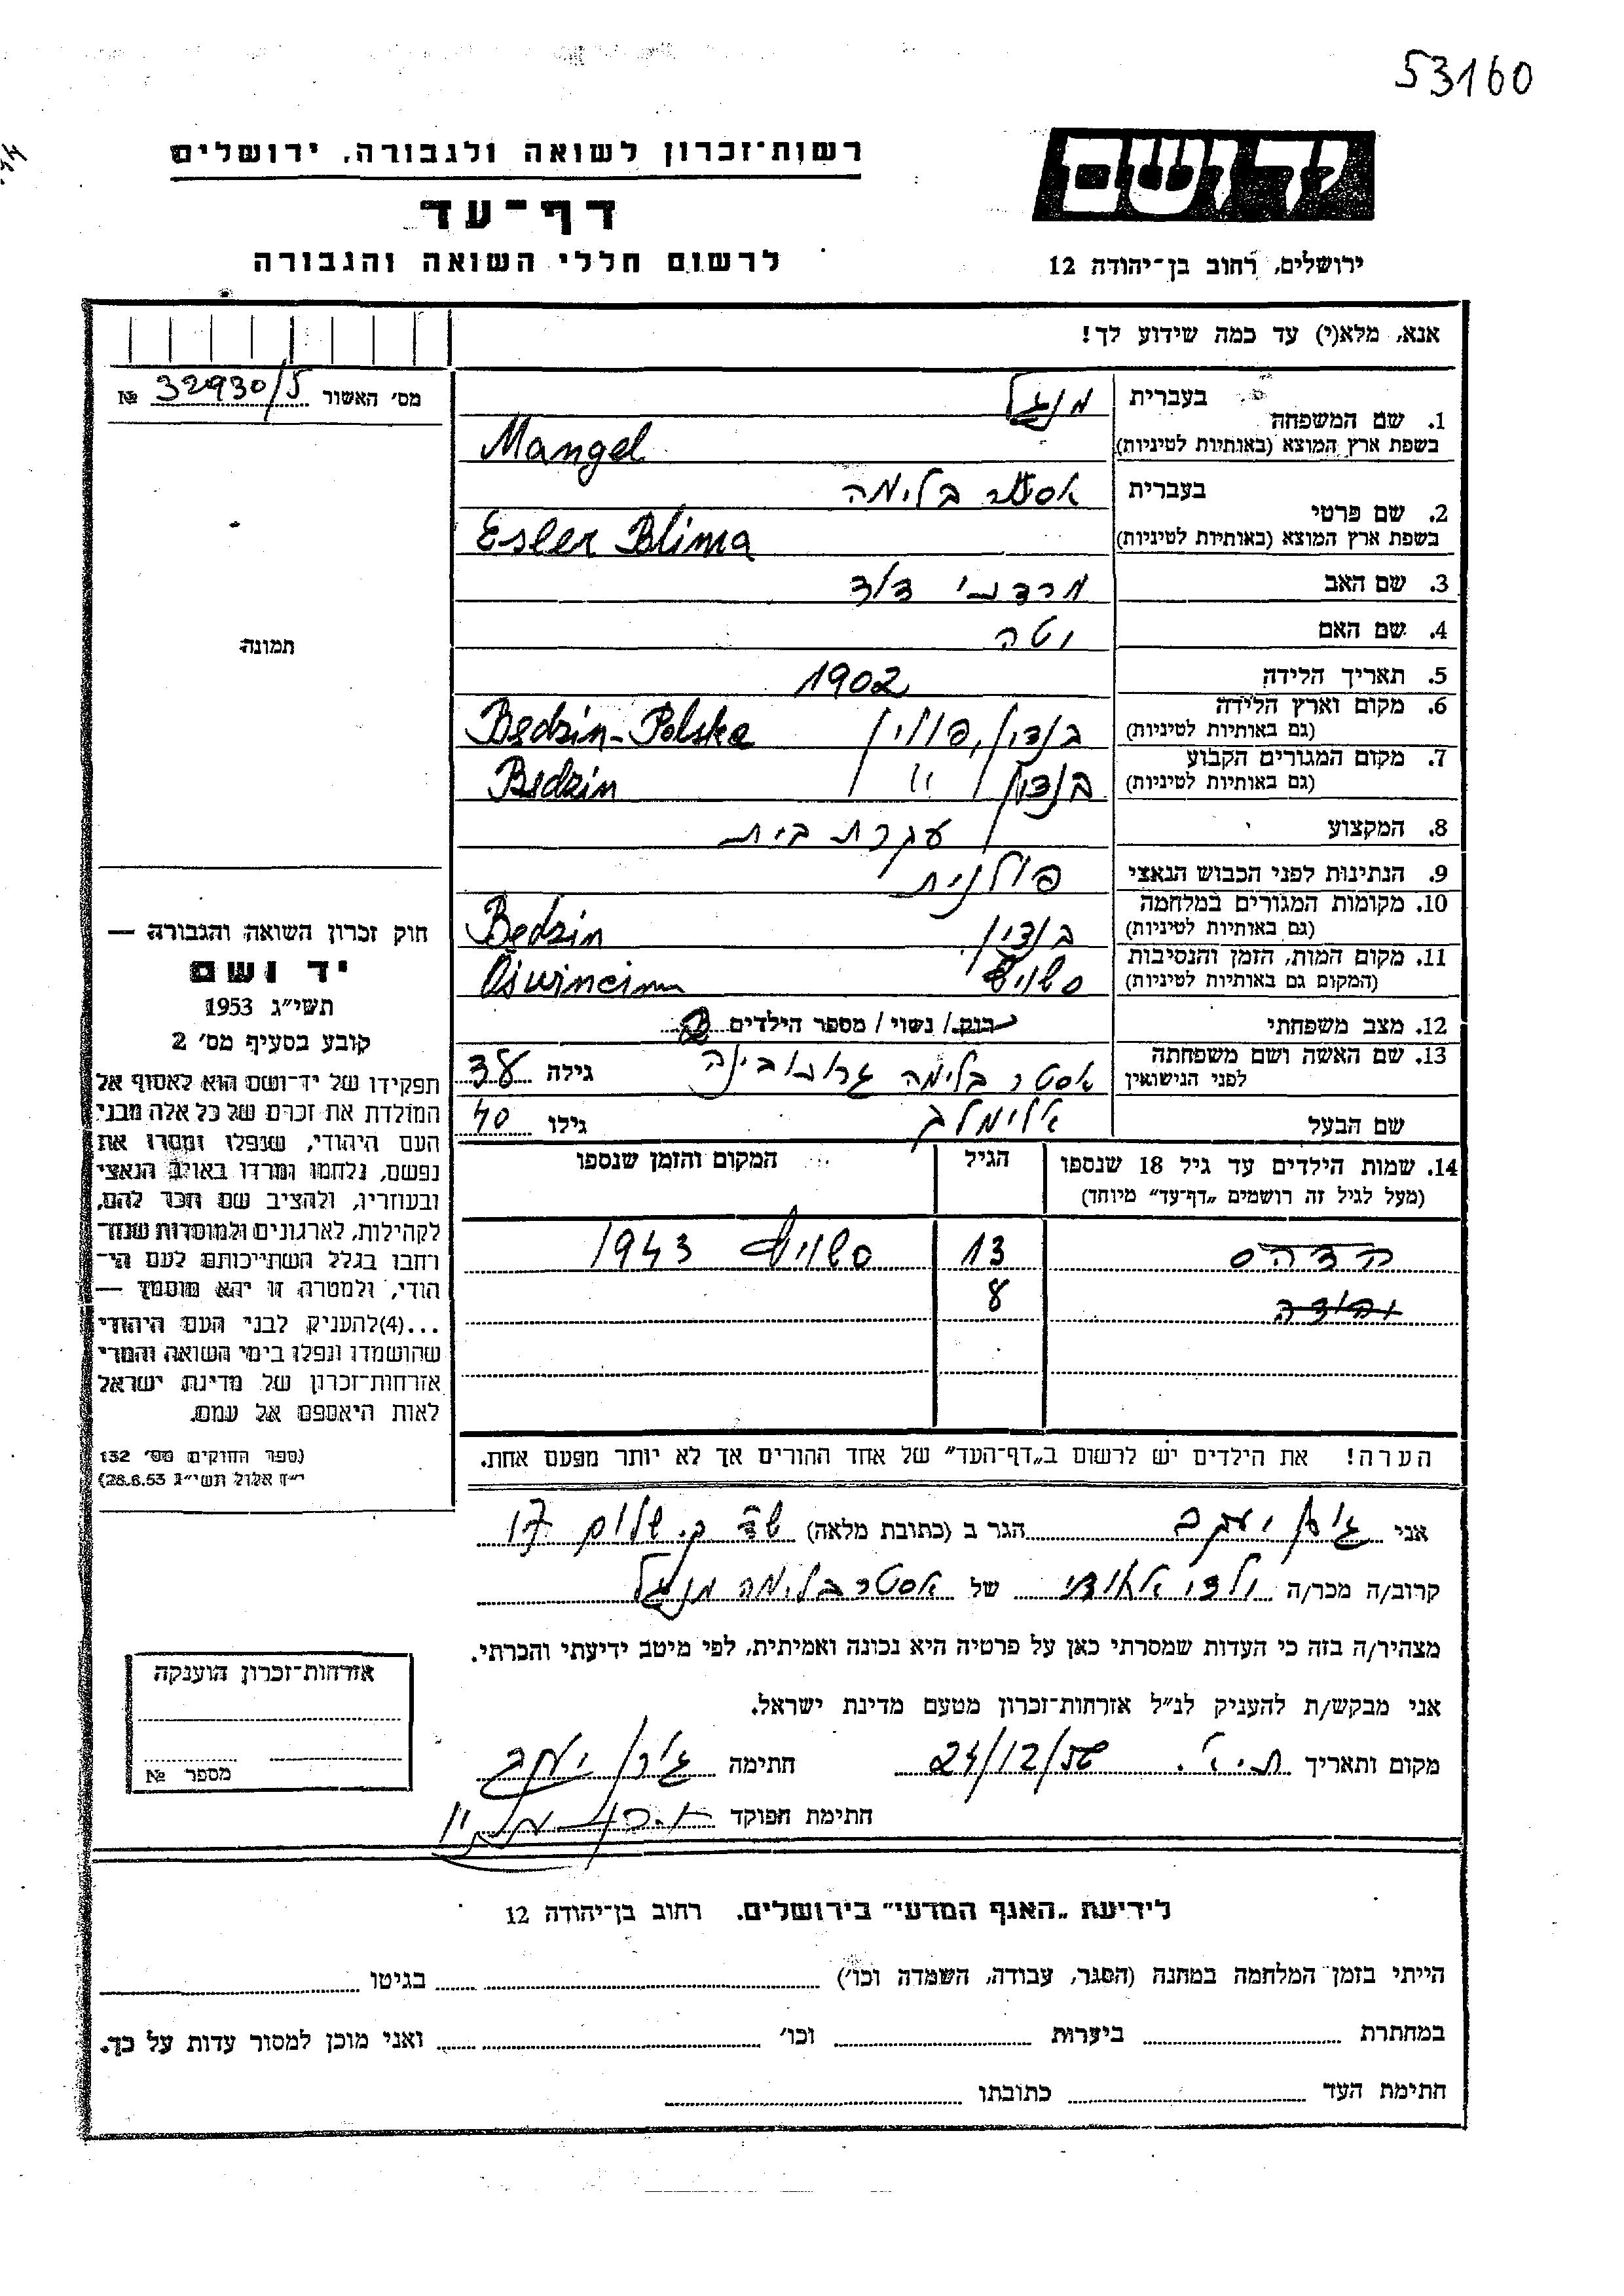 53160
רשות־זכרון לשואה ולגבורה, ירושלים
דף־עד
לרשום חללי השואה והגבורה
ידושם
ירושלים, רחוב בן־יהודה 12
אנא, מלא(י) עד כמה שידוע לך!
מס׳ האשור 32930/5 №
1. שם המשפחה בעברית מנגל
בשפת ארץ המוצא (באותיות לטיניות) Mangel
2. שם פרטי בעברית אסתר בלימה
בשפת ארץ המוצא (באותיות לטיניות) Ester Blima
3. שם האב מרדכי דוד
4. שם האם
5. תאריך הלידה 1902
6. מקום וארץ הלידה (גם באותיות לטיניות) בנדין, פולין Będzin-Polska
7. מקום המגורים הקבוע (גם באותיות לטיניות) בנדין " Będzin
8. המקצוע עקרת בית
9. הנתינות לפני הכבוש הנאצי פולנית
10. מקומות המגורים במלחמה (גם באותיות לטיניות) בנדין Będzin
11. מקום המות, הזמן והנסיבות (המקום גם באותיות לטיניות)
12. מצב משפחתי רוק/ נשוי / מספר הילדים
13. שם האשה ושם משפחתה לפני הנישואין אסטר בלימה גילה 38
שם הבעל אלימלך גילו 40
14. שמות הילדים עד גיל 18 שנספו
(מעל לגיל זה רושמים „דף־עד״ מיוחד)
הגיל
המקום והזמן שנספו
הדסה 13 1943
8
הערה! את הילדים יש לרשום ב„דף־העד״ של אחד ההורים אך לא יותר מפעם אחת.
תמונה
חוק זכרון השואה והגבורה —
יד ושם
תשי״ג 1953
קובע בסעיף מס׳ 2
תפקידו של יד־ושם הוא לאסוף אל
המולדת את זכרם של כל אלה מבני
העם היהודי, שנפלו ומסרו את
נפשם, נלחמו ומרדו באויב הנאצי
ובעוזריו, ולהציב שם וזכר להם,
לקהילות, לארגונים ולמוסדות שנח־
רחבו בגלל השתייכותם לעם הי־
הודי, ולמטרה זו יהא מוסמך —
...(4)להעניק לבני העם היהודי
שהושמדו ונפלו בימי השואה והמרי
אזרחות־זכרון של מדינת ישראל
לאות היאספם אל עמם.
(ספר החוקים מס׳ 132
י״ז אלול תשי״ג 28.8.53)
אני יעקב הגר ב (כתובת מלאה) שלום 17
קרוב/ה מכר/ה של אסטר בלימה מנגל
מצהיר/ה בזה כי העדות שמסרתי כאן על פרטיה היא נכונה ואמיתית, לפי מיטב ידיעתי והכרתי.
אני מבקש/ת להעניק לנ״ל אזרחות־זכרון מטעם מדינת ישראל.
מקום ותאריך חתימה יעקב
חתימת הפוקד
אזרחות־זכרון הוענקה
מספר №
לידיעת „האגף המדעי״ בירושלים. רחוב בן־יהודה 12
הייתי בזמן המלחמה במחנה (הסגר, עבודה, השמדה וכו׳) בגיטו
במחתרת ביערות וכו׳ ואני מוכן למסור עדות על כך.
חתימת העד כתובתו